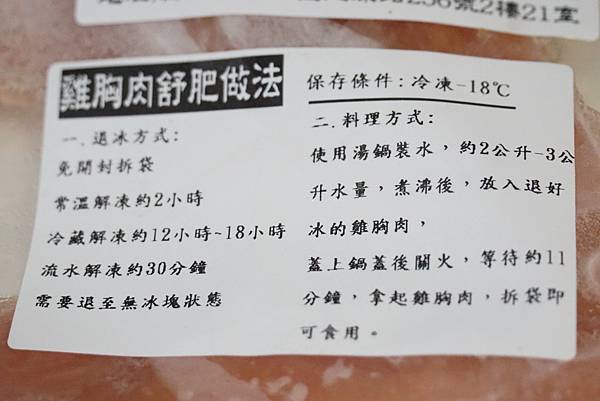 236號2樓21室
雞胸肉舒肥做法
一.退冰方式:
免開封拆袋
常溫解凍約2小時
冷藏解凍約12小時~18小時
流水解凍約30分鐘
需要退至無冰塊狀態
保存條件:冷凍-18℃
二.料理方式:
使用湯鍋裝水,約2公升-3公
升水量,煮沸後,放入退好
冰的雞胸肉,
蓋上鍋蓋後關火,等待約11
分鐘,拿起雞胸肉,拆袋即
可食用。